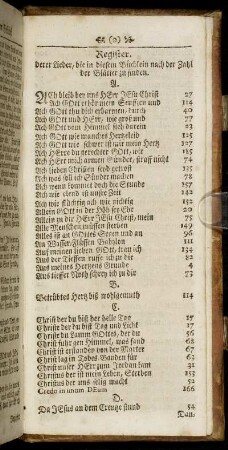 (o)
Register.
derer Lieder, die in diesem Büchlein nach der Zahl
der Blätter zu finden.
A.
ACh bleib bey uns HErr JEsu Christ 27
Ach GOtt erhör mein Seuffzen und 114
Ach GOtt thu dich erbarmen durch 40
Ach GOtt und HErr, wie groß und 77
Ach GOtt vom Himmel sieh darein 23
Ach GOtt wie manches Hertzeleid 125
Ach GOtt wie schwer ist wie mein Hertz 127
Ach HErr du gerechter GOtt, wir 185
Ach HErr mich armen Sünder, straff nicht 74
Ach lieben Christen seyd getrost 145
Ach was soll ich Sünder machen 78
Ach wenn kommet doch die Stunde 157
Ach wie elend ist unsre Zeit 142
Ach wie flüchtig ach wie nichtig 152
Allein GOtt in der Höh sey Ehr 20
Allein zu dir HErr JEsu Christ, mein 75
Alle Menschen müssen sterben 149
Alles ist an GOttes Segen und an 96
An Wasser-Flüssen Babylon 111
Auf meinen lieben GOtt, trau ich 134
Aus der Tieffen ruffe ich zu dir 82
Aus meines Hertzens Grunde 4
Aus tieffer Noth schrey ich zu dir 73
B.
Betrübtes Hertz biß wohlgemuth 114
C.
Christ der du bist der helle Tag 15
Christe der du bist Tag und Licht 17
Christe du Lamm GOttes, der du 56
Christ fuhr gen Himmel, was sand 62
Christ ist erstanden von der Marter 67
Christ lag in Todes Banden für 63
Christ unser HErr zum Jordan kam 31
Christus der ist mein Leben, Sterben 153
Christus der uns selig macht 52
Credo in unum DEum 166
D.
Da JEsus an dem Creutze stund 54